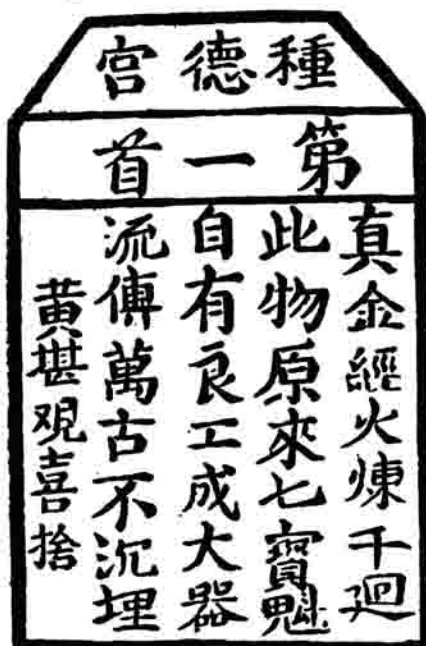 種德宮
第一首
真金經火煉千迴
此物原來七寶魁
自有良工成大器
流傳萬古不沉埋
黃堪观喜捨